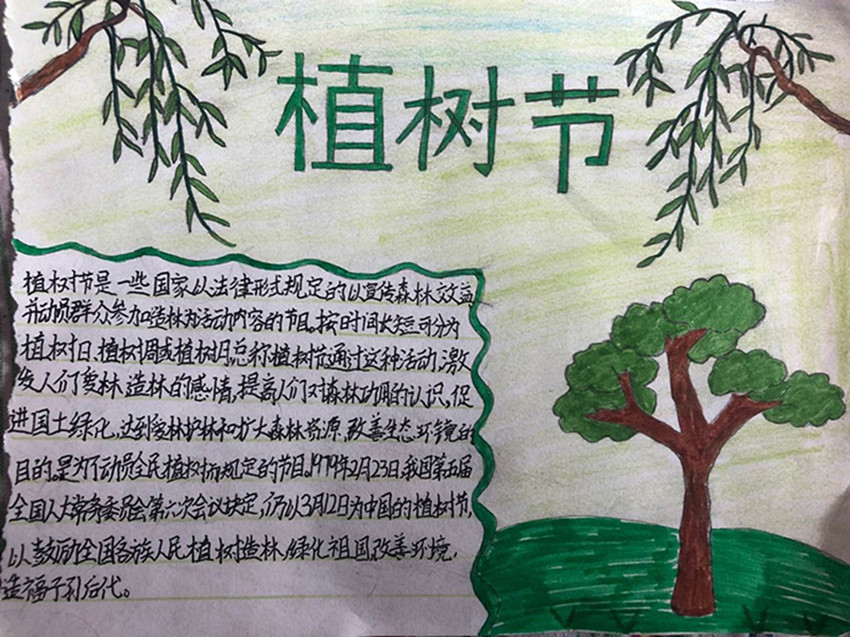 植树节
植树节是一些国家以法律形式规定的以宣传森林效益
并动员群众参加造林为活动内容的节日。按时间长短可分为
植树日、植树周或植树月,总称植树节。通过这种活动,激
发人们爱林、造林的感情,提高人们对森林功用的认识,促
进国土绿化,达到爱林护林和扩大森林资源、改善生态环境的
目的。是为了动员全民植树而规定的节日。1979年2月23日,我国第五届
全国人大常务委员会第六次会议决定,仍以3月12日为中国的植树节,
以鼓励全国各族人民植树造林,绿化祖国,改善环境,
造福子孙后代。